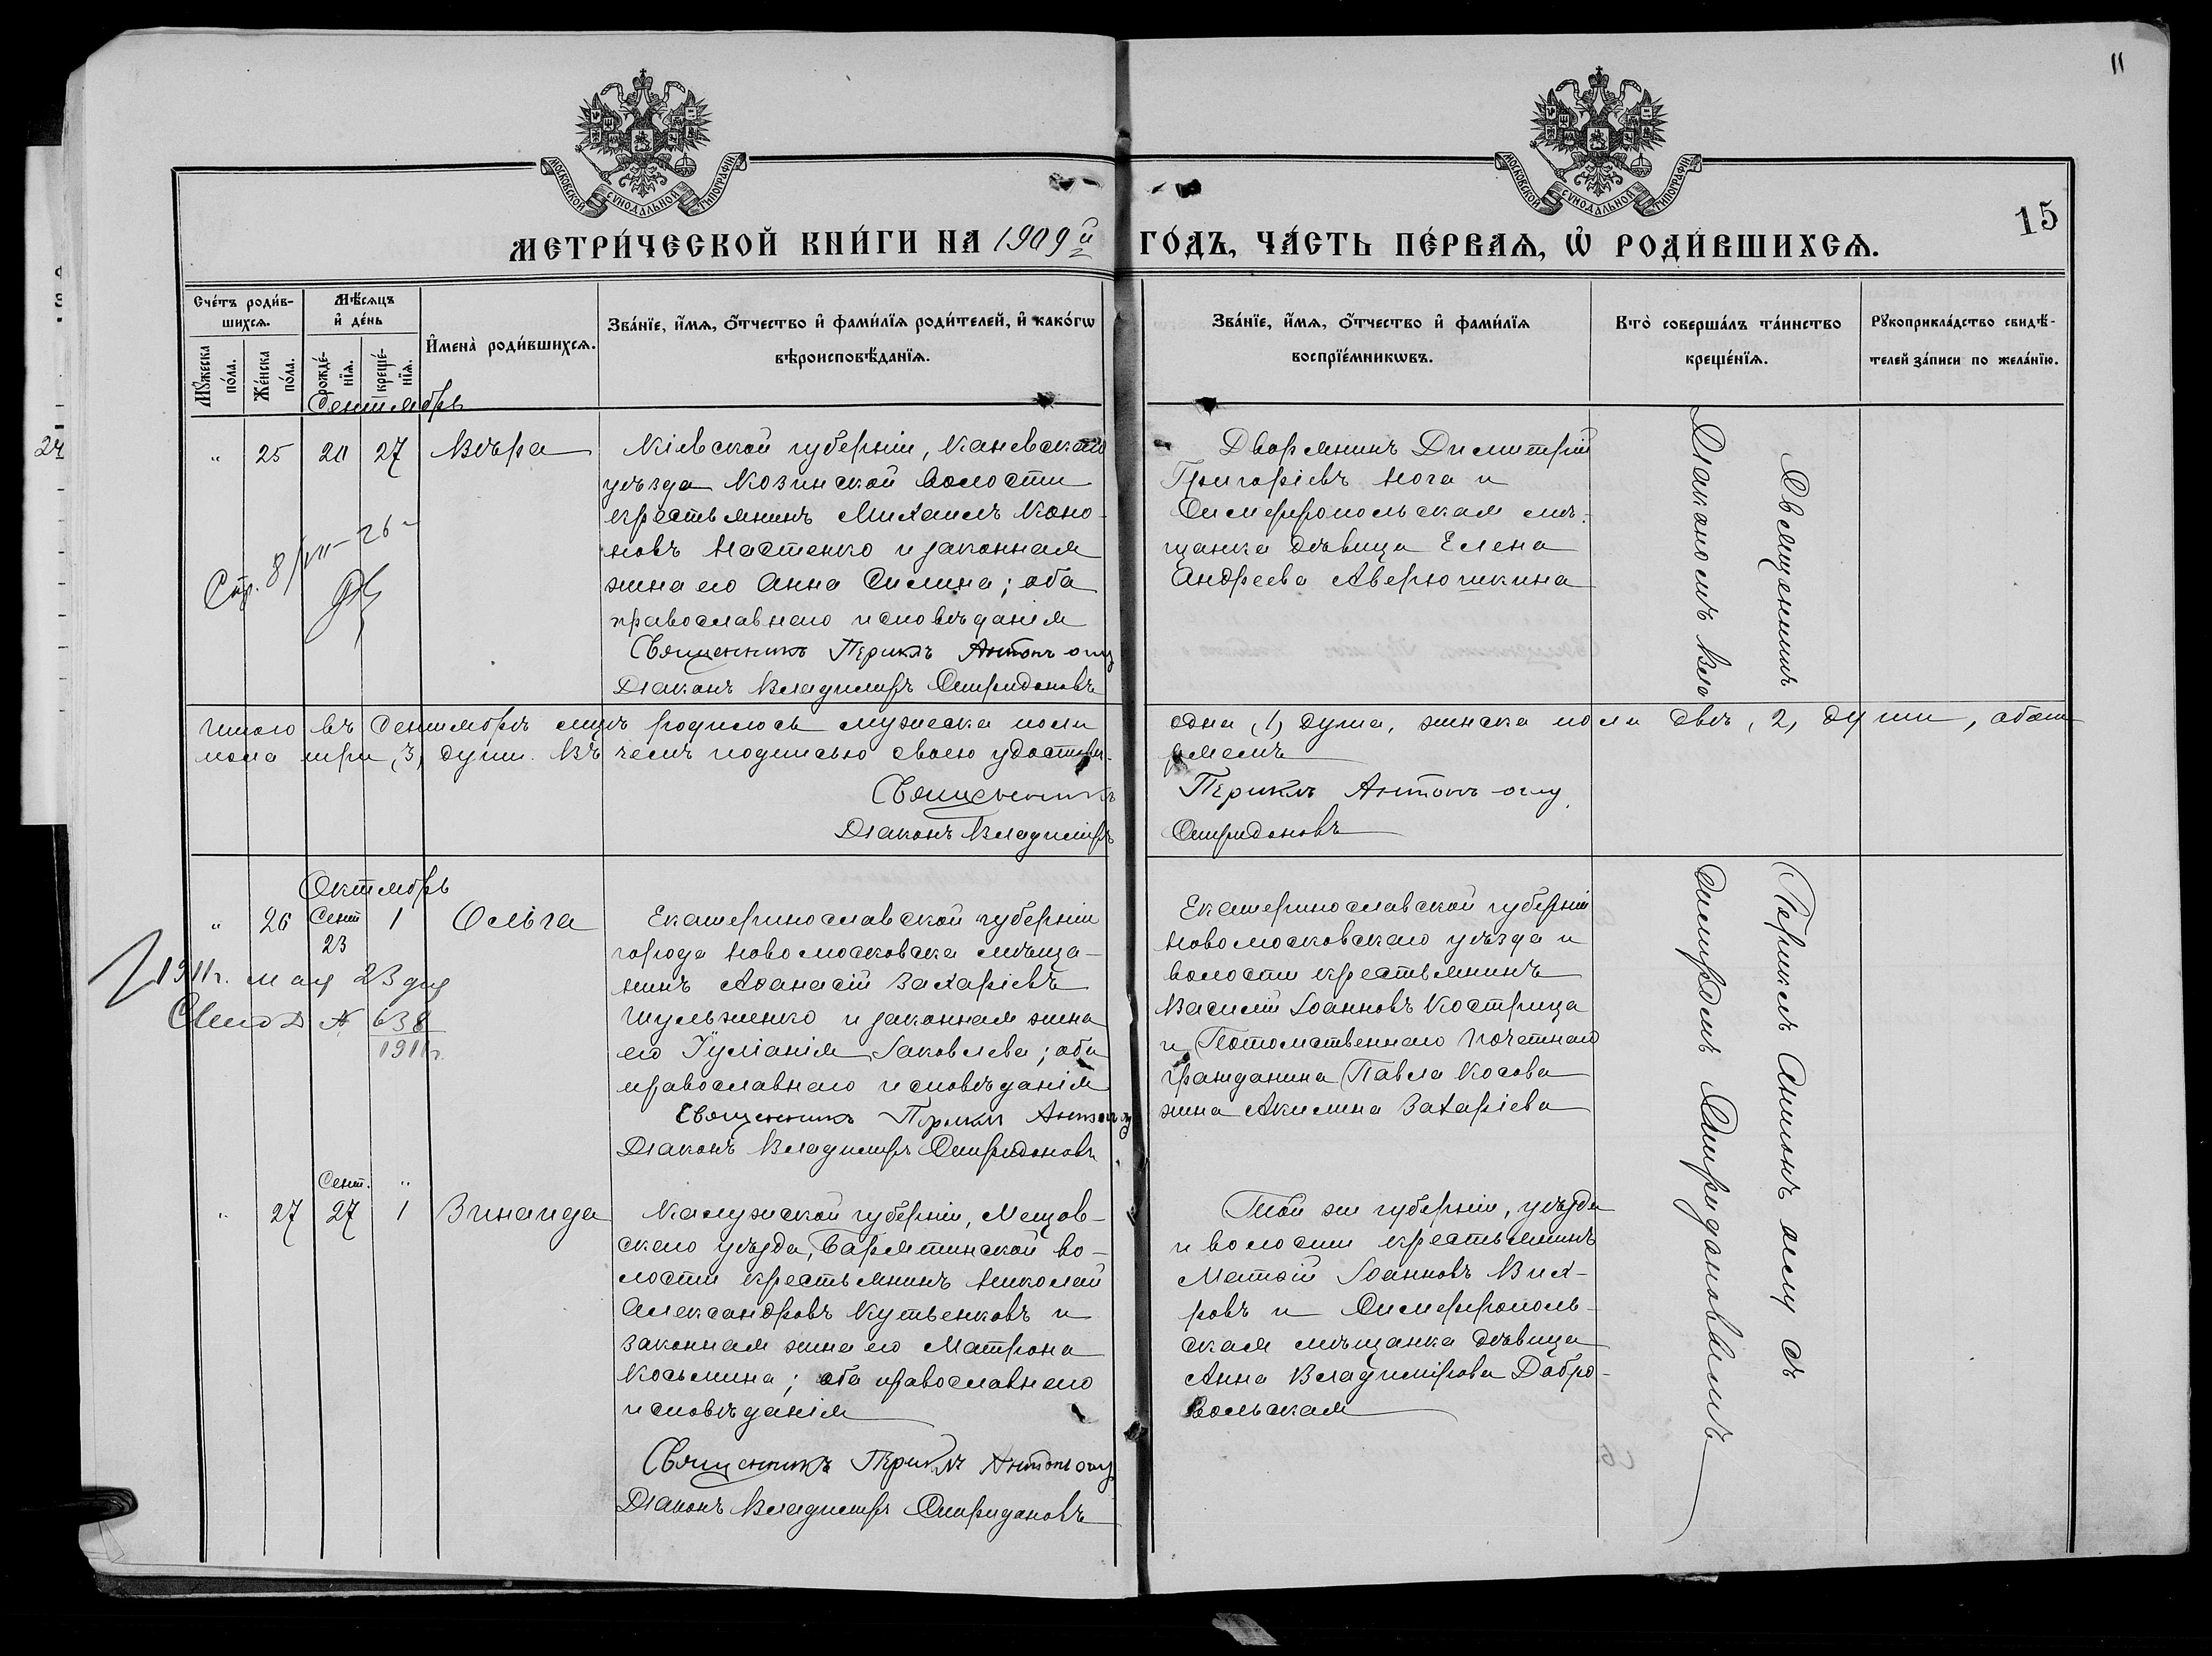 11
15
МОСКОВСКОЙ СѴНОДАЛЬНОЙ ТИПОГРАФІИ
МОСКОВСКОЙ СѴНОДАЛЬНОЙ ТИПОГРАФІИ
МЕТРИ́ЧЕСКОЙ КНИ́ГИ НА 1909й ГО́ДЪ, ЧА́СТЬ ПЕ́РВАѦ, Ѡ҆ РОДИ́ВШИХСѦ.
Сче́тъ роди́в-
шихсѧ.
Мꙋ́жеска по́ла.
Же́нска по́ла.
Мѣ́сѧцъ
и҆ де́нь
рожде́-
нїѧ.
креще́-
нїѧ.
И҆мена̀ роди́вшихсѧ.
Зва́нїе, и҆́мѧ, ѻ҆́тчество и҆ фами́лїѧ роди́телей, и҆ како́гѡ
вѣроисповѣ́данїѧ.
Зва́нїе, и҆́мѧ, ѻ҆́тчество и҆ фами́лїѧ
воспрїе́мникѡвъ.
Кто̀ соверша́лъ та́инство
креще́нїѧ.
Рꙋкоприкла́дство свидѣ́-
телей за́писи по жела́нїю.
Сентябрь
24
" 25 20 27 Вѣра
Кіевской губерніи, Каневскаго
уѣзда Козинской волости
крестьянинъ Михаилъ Коно-
новъ Настенко и законная
жена его Анна Силина; оба
православнаго исповѣданія
Священникъ Периклъ Антонъ оглу
Діаконъ Владимиръ Спиридоновъ
Стр. 8/VII-26
Дворянинъ Димитрій
Григоріевъ Нога и
Симферопольская мѣ-
щанка дѣвица Елена
Андреева Аверюшкина
Священник
Діакономъ Вла
Итого въ Сентябрѣ мцѣ родилось мужеска пола одна (1) душа, женска пола двѣ (2) души, обоего
пола три (3) души. Въ чемъ подписью своею удостовѣ-
ряемъ
Священникъ Периклъ Антонъ-оглу
Діаконъ Владиміръ Спиридоновъ
Октябрь
" 26 Сент 23 1 Ольга
1911г. мая 23 дня
Свид № 638
1911г.
Екатеринославской губерніи
города Новомосковска мѣща-
нинъ Аѳанасій Захаріевъ
Шульженко и законная жена
его Іуліанія Іаковлева; оба
православнаго исповѣданія
Священникъ Периклъ Антонъ оглу
Діаконъ Владимиръ Спиридоновъ
Екатеринославской губерніи
Новомосковскаго уѣзда и
волости крестьянинъ
Василій Іоанновъ Кострица
и Потомственнаго Почетнаго
гражданина Павла Косова
жена Акилина Захаріева
Перикломъ Антонъ оглу съ
диміромъ Спиридоновымъ
Сент. "
" 27 27 1 Зинаида
Калужской губерніи, Мещов-
скаго уѣзда, Барятинской во-
лости крестьянинъ Николай
Александровъ Кутьенковъ и
законная жена его Матрона
Косьмина; оба православнаго
исповѣданія
Священникъ Периклъ Антонъ оглу
Діаконъ Владимиръ Спиридоновъ
Той же губерніи, уѣзда
и волости крестьянинъ
Матѳій Іоанновъ Вих-
ровъ и Симферополь-
ская мѣщанка дѣвица
Анна Владимірова Добро-
вольская